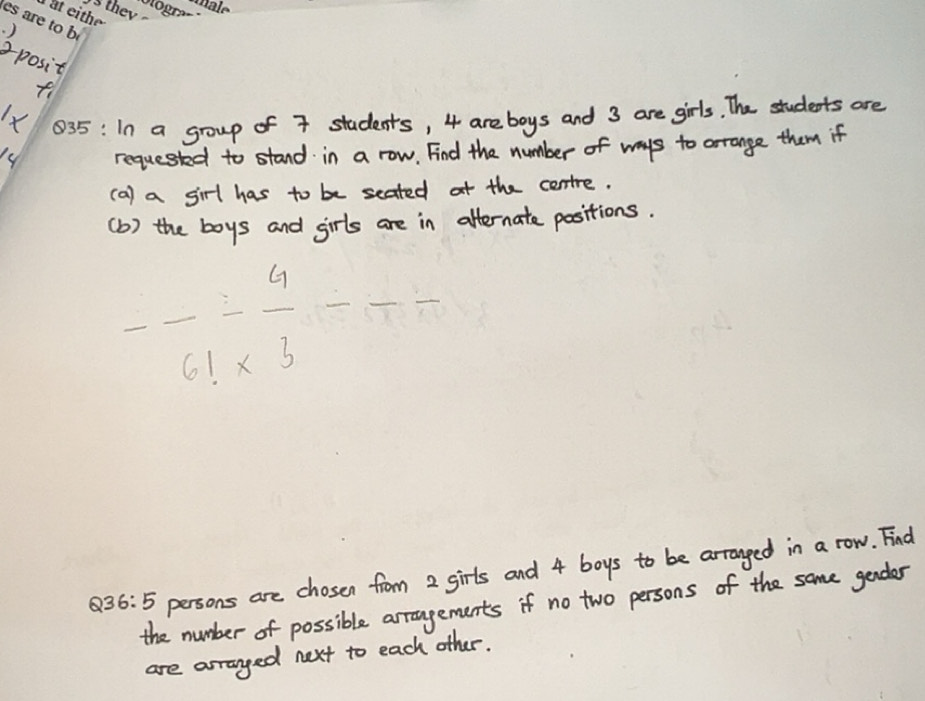 at eithe
s they
male
es are to b
2 posit
Q35 : In a group of 7 students, 4 are boys and 3 are girls. The students are
requested to stand in a row. Find the number of ways to arrange them if
(a) a girl has to be seated at the centre.
(b) the boys and girls are in alternate positions.
G
6! × 3
Q36: 5 persons are chosen from 2 girls and 4 boys to be arranged in a row. Find
the number of possible arrangements if no two persons of the same gender
are arranged next to each other.